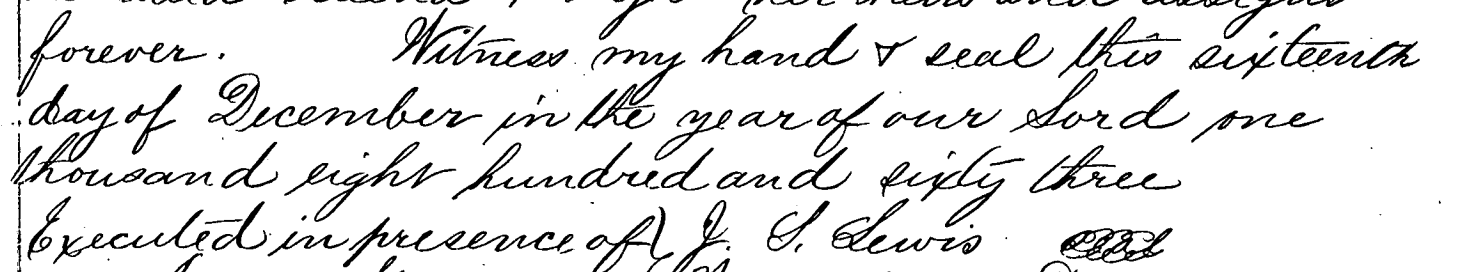 her heirs and assigns
forever. Witness my hand & seal this sixteenth
day of December in the year of our Lord one
thousand eight hundred and sixty three
Executed in presence of) J. S. Lewis